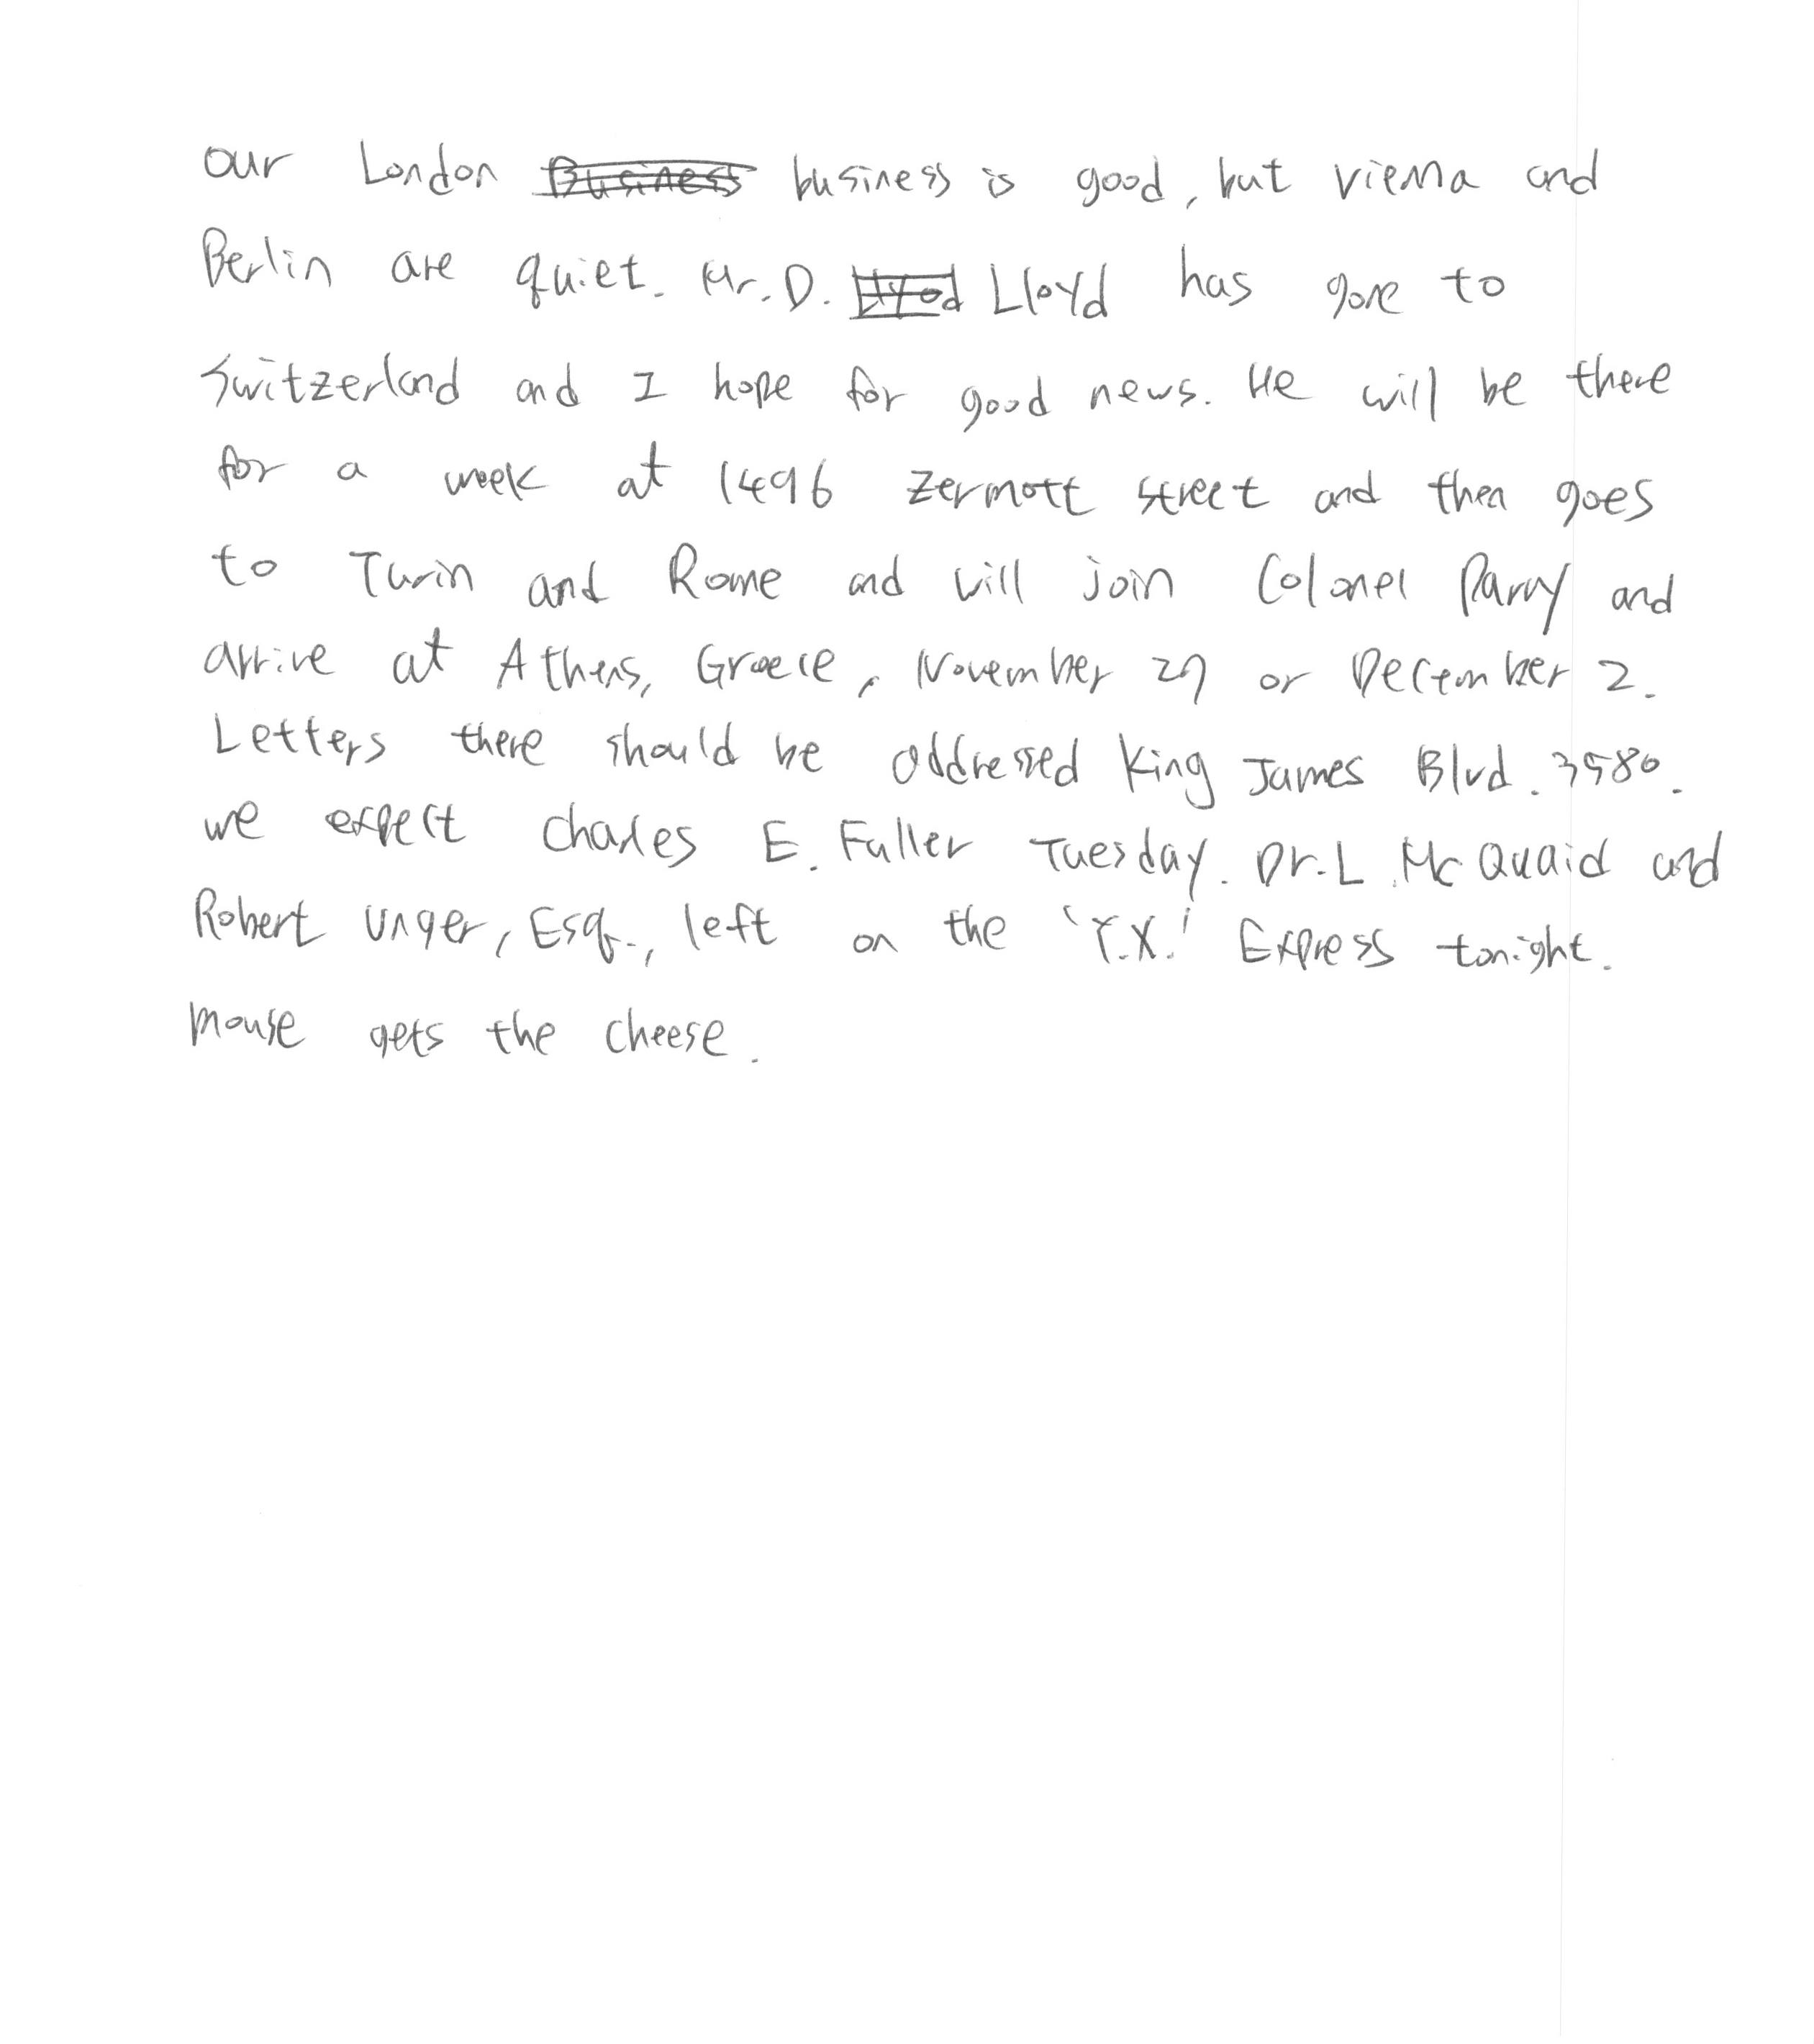 our London Business business is good, but vienna and
Berlin are quiet. Mr. D. Lloyd has gone to
Switzerland and I hope for good news. He will be there
for a week at 1496 Zermott street and then goes
to Turin and Rome and will join Colonel Parry and
arrive at Athens, Greece, November 27 or December 2.
Letters there should be addressed King James Blvd. 3580.
we expect Charles E. Fuller Tuesday. Dr. L. McQuaid and
Robert Unger, Esq., left on the 'Y.X.' Express tonight.
mouse gets the cheese.